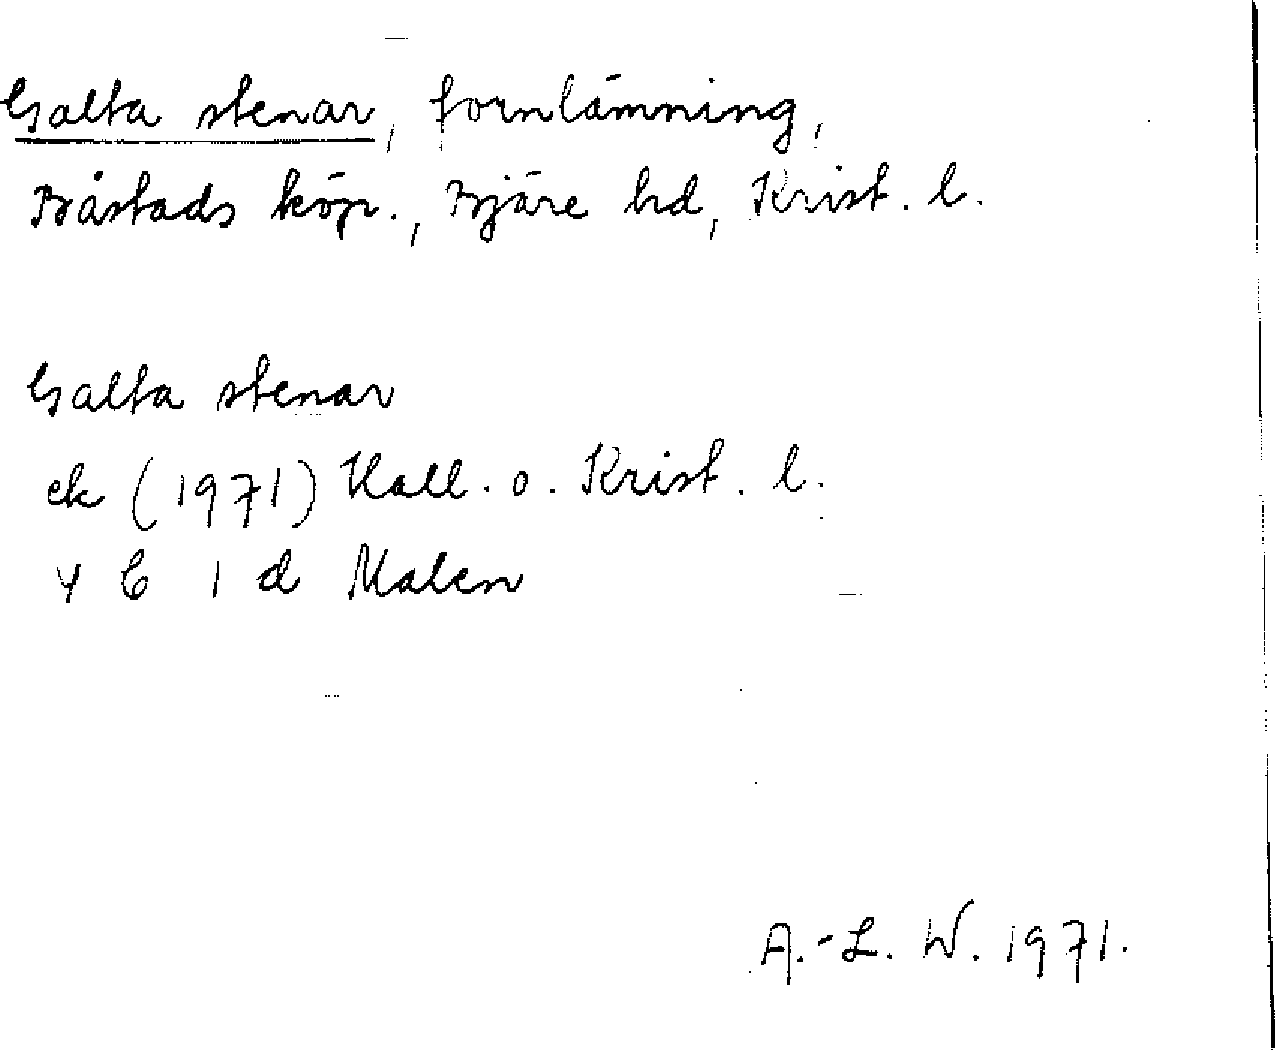 Galta stenar, fornlämning,
Båstads köp., Bjäre hd, Krist. l.
Galta stenar
ek (1971) Hall. o. Krist. l.
4 C 1 d Malen
A.-L. W. 1971.